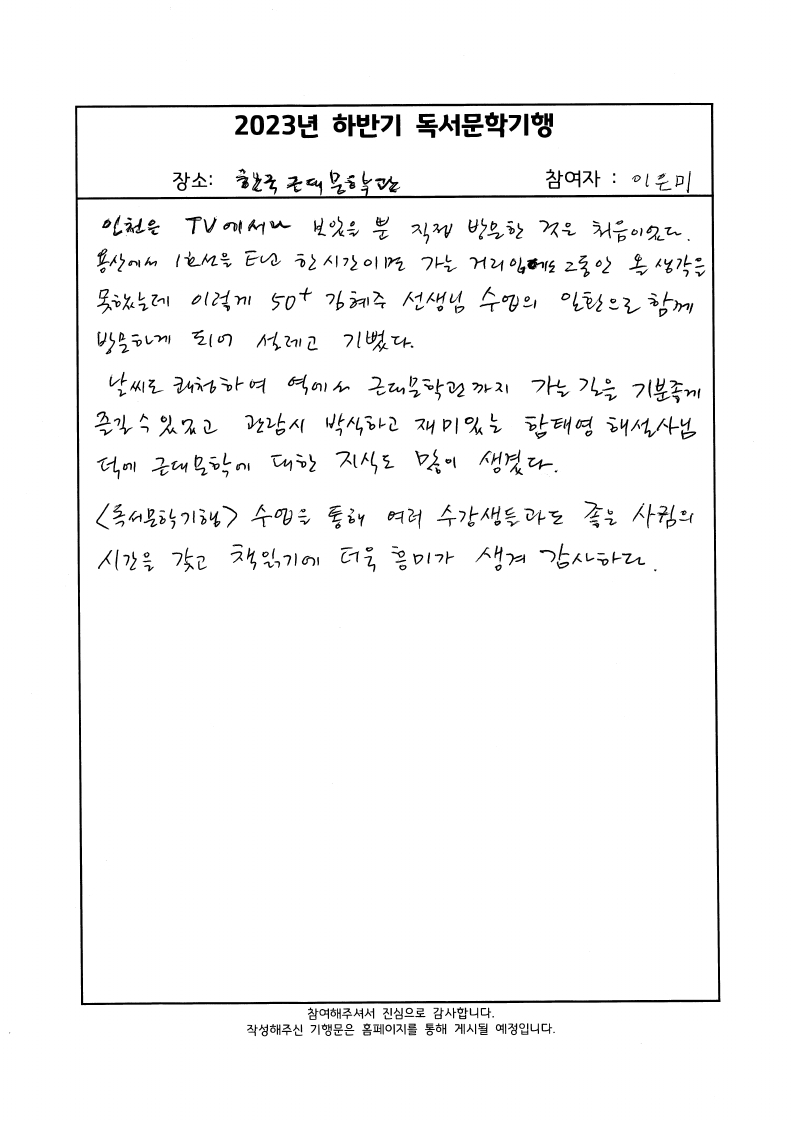 2023년 하반기 독서문학기행
장소: 한국 근대문학관 참여자 : 이은미
인천은 TV에서나 보았을 뿐 직접 방문한 것은 처음이었다.
용산에서 1호선을 타고 한시간이면 가는 거리임에도 그동안 올 생각을
못했는데 이렇게 50+ 김혜주 선생님 수업의 일환으로 함께
방문하게 되어 설레고 기뻤다.
날씨도 쾌청하여 역에서 근대문학관까지 가는 길을 기분좋게
즐길 수 있었고 관람시 박식하고 재미있는 함태영 해설사님
덕에 근대문학에 대한 지식도 많이 생겼다.
<독서문학기행> 수업을 통해 여러 수강생들과도 좋은 사귐의
시간을 갖고 책읽기에 더욱 흥미가 생겨 감사하다.
참여해주셔서 진심으로 감사합니다.
작성해주신 기행문은 홈페이지를 통해 게시될 예정입니다.